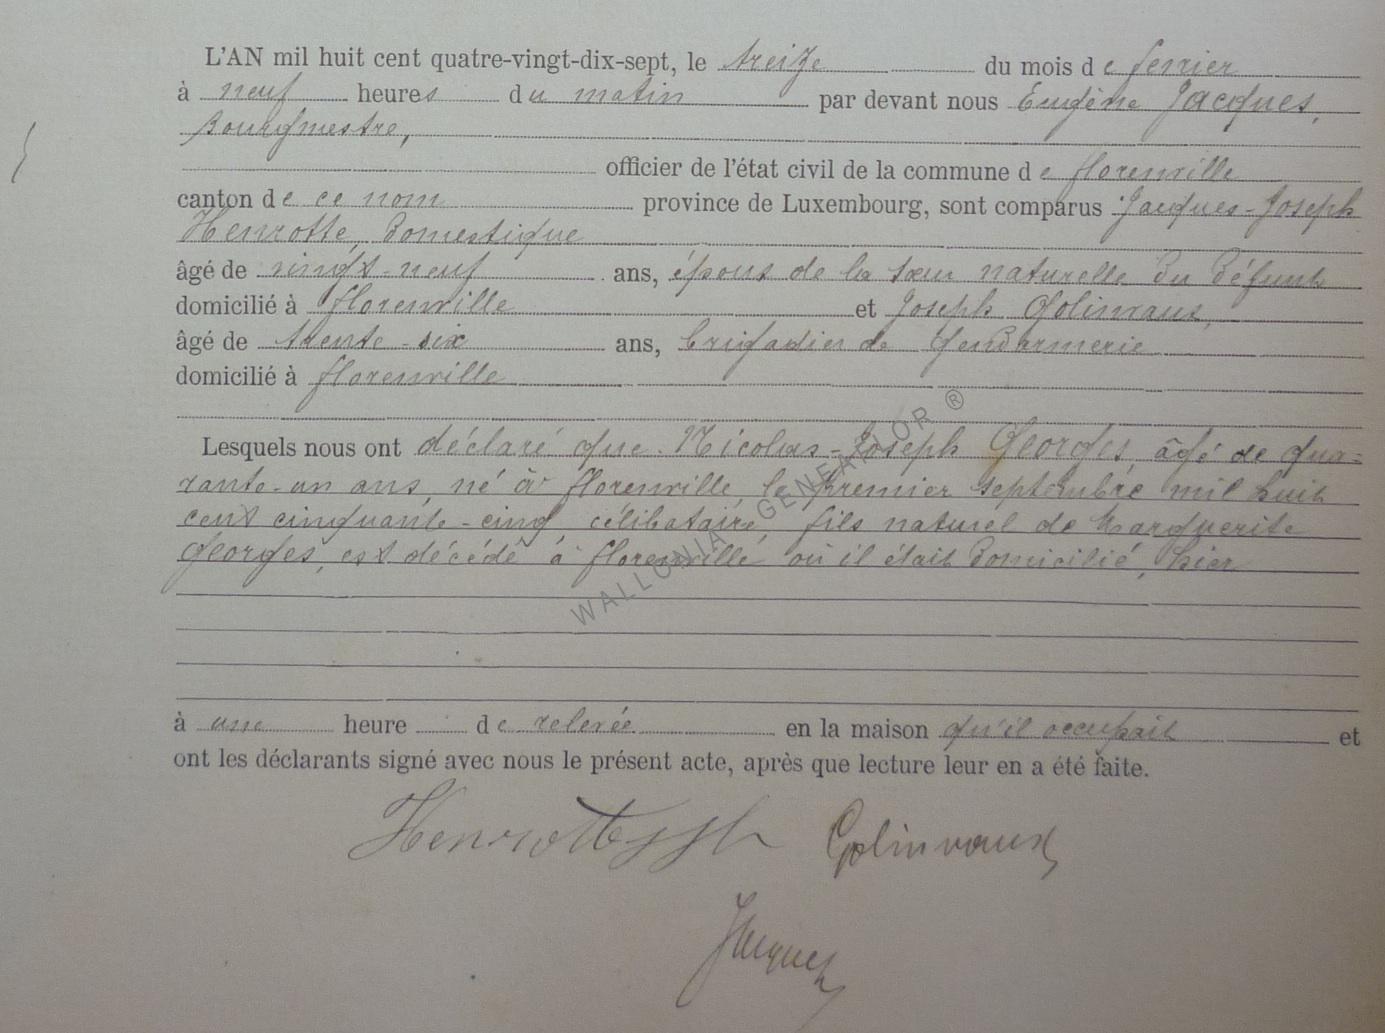 L'AN mil huit cent quatre-vingt-dix-sept, le treize du mois de fevrier
à neuf heures du matin par devant nous Eugène Jacques,
Bourgmestre,
officier de l'état civil de la commune de florenville
canton de ce nom province de Luxembourg, sont comparus Jacques-Joseph
Henrotte, Domestique
âgé de vingt-neuf ans, époux de la sœur naturelle du Défunt
domicilié à florenville et Joseph Golinvaux,
âgé de trente-six ans, brigadier de Gendarmerie
domicilié à florenville
Lesquels nous ont déclaré que Nicolas-Joseph Georges, âgé de qua=
rante-un ans, né à florenville, le premier septembre mil huit
cent cinquante-cinq, célibataire, fils naturel de Marguerite
Georges, est décédé à florenville où il était Domicilié, hier
à une heure de relevée en la maison qu'il occupait et
ont les déclarants signé avec nous le présent acte, après que lecture leur en a été faite.
Henrotte Golinvaux
Jacques
WALLONIA GENEAFLOR ®